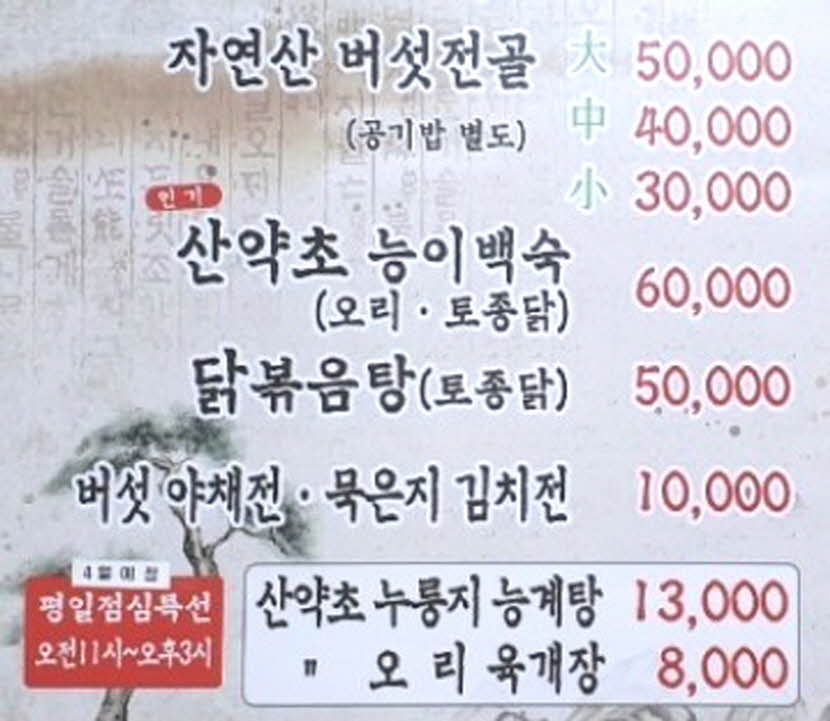 자연산 버섯전골 大 50,000
(공기밥 별도) 中 40,000
小 30,000
인기
산약초 능이백숙
(오리·토종닭) 60,000
닭볶음탕(토종닭) 50,000
버섯 야채전·묵은지 김치전 10,000
4월예정
평일점심특선
오전11시~오후3시
산약초 누룽지 능계탕 13,000
" 오 리 육개장 8,000